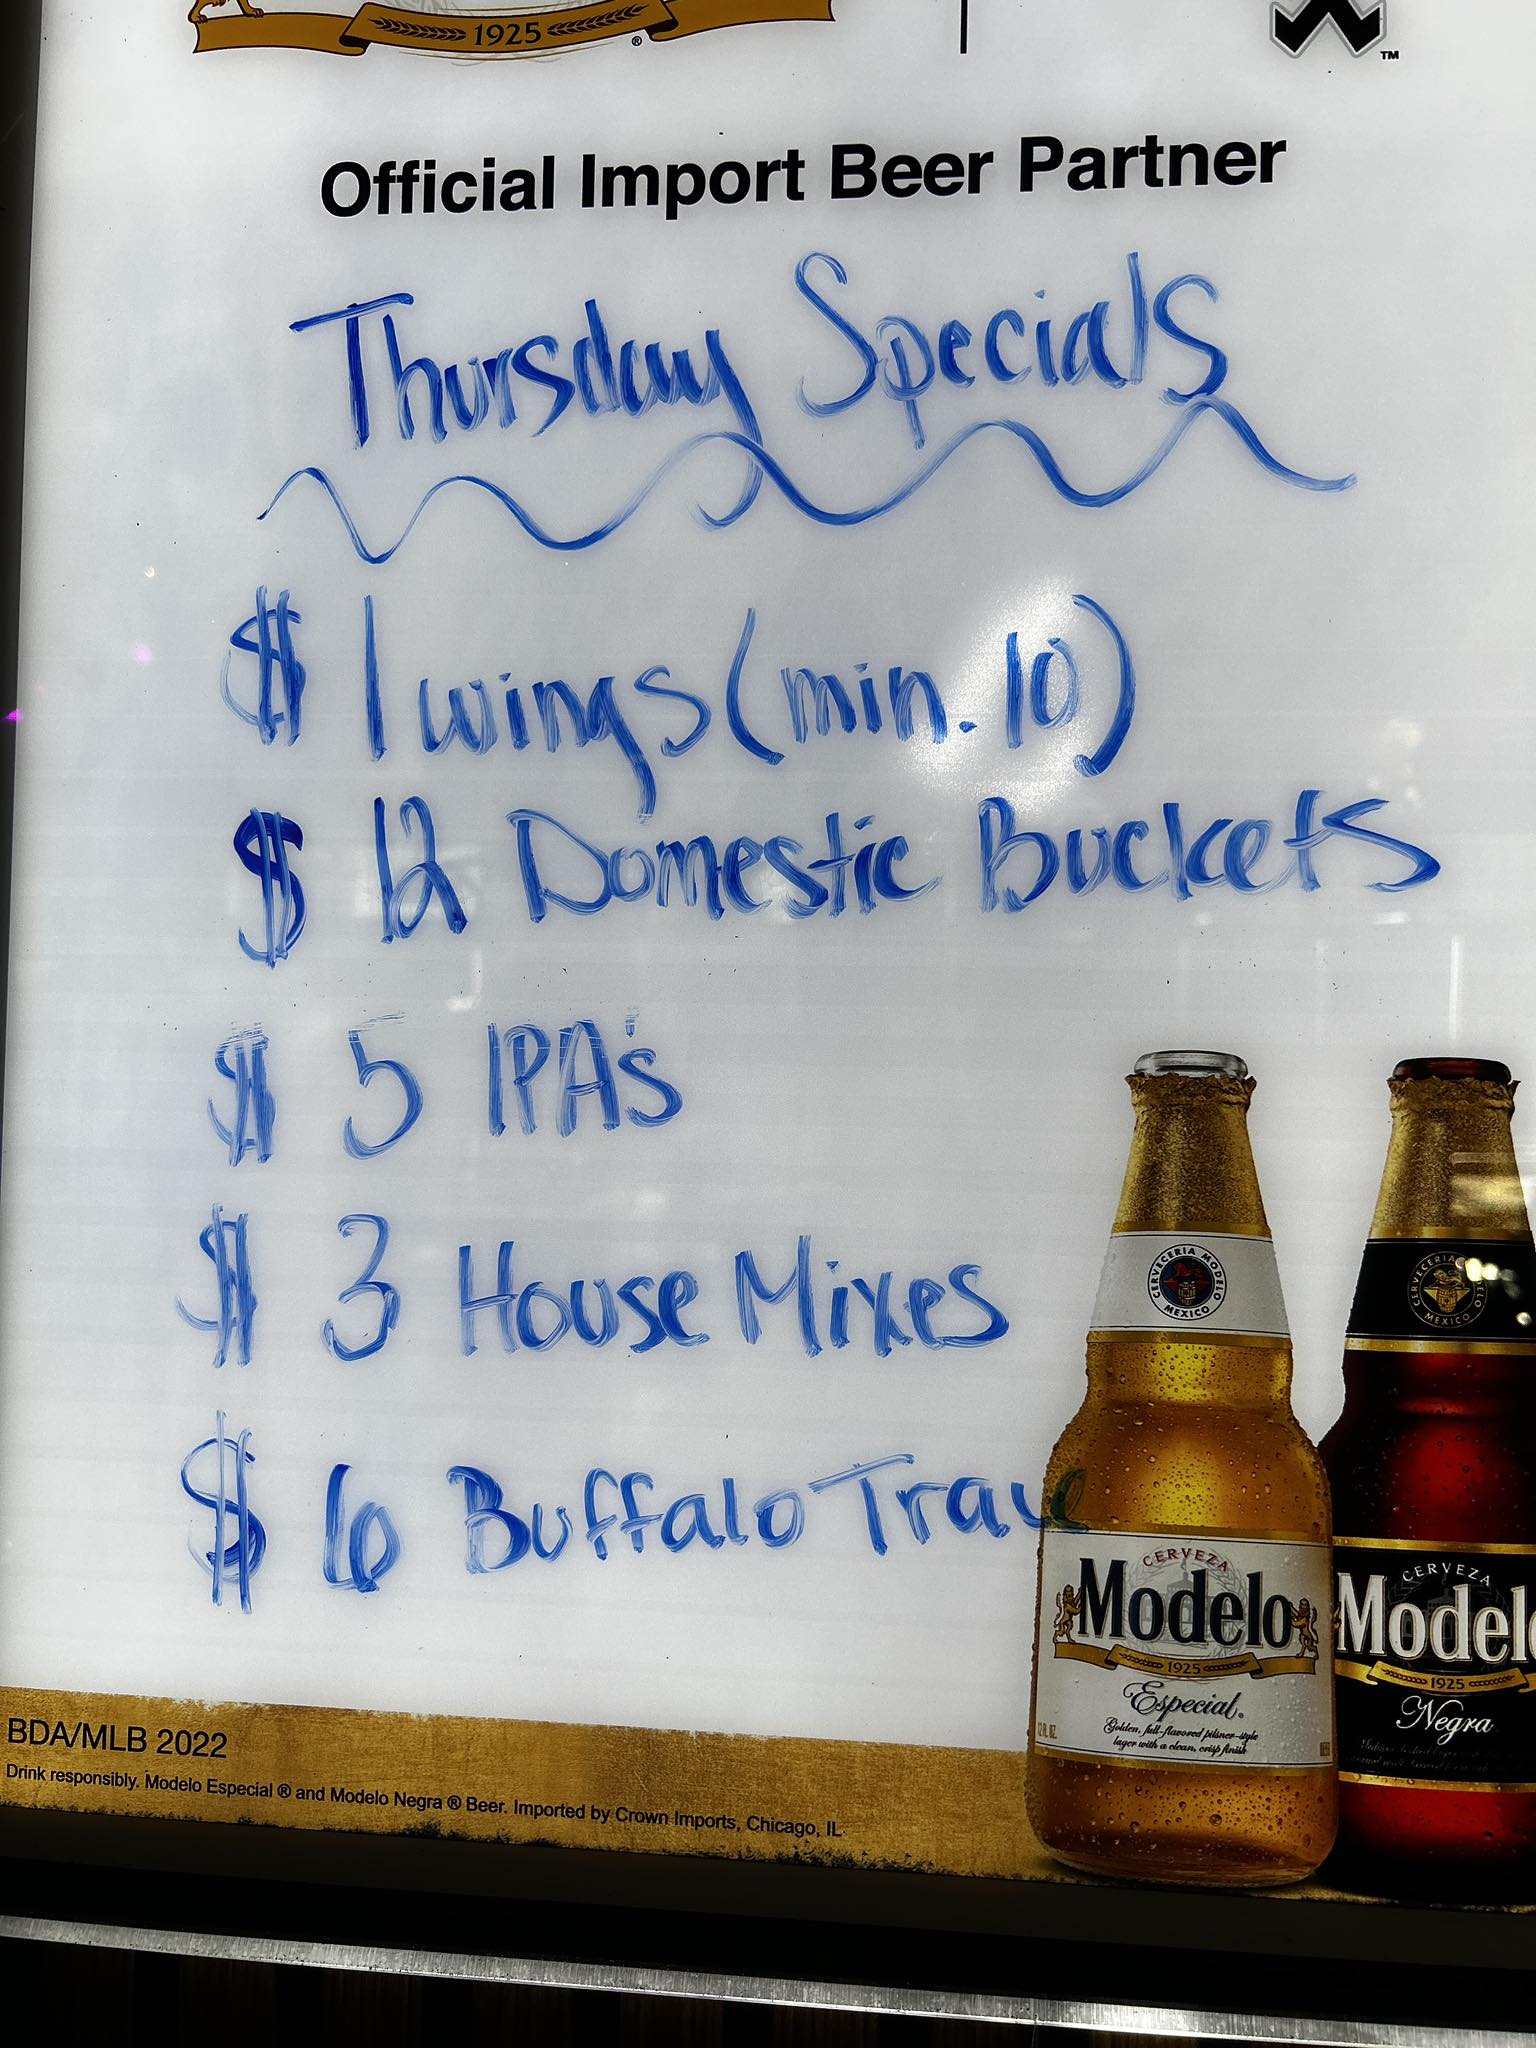 1925
®
TM
Official Import Beer Partner
Thursday Specials
$ 1 wings (min. 10)
$ 12 Domestic Buckets
$ 5 IPA's
$ 3 House Mixes
$ 6 Buffalo Trace
CERVECERIA MODELO
MEXICO
CERVECERIA MODELO
MEXICO
CERVEZA
Modelo
1925
Especial
Golden, full-flavored pilsner-style
lager with a clean, crisp finish
12 FL. OZ.
CERVEZA
Modelo
1925
Negra
BDA/MLB 2022
Drink responsibly. Modelo Especial ® and Modelo Negra ® Beer. Imported by Crown Imports, Chicago, IL